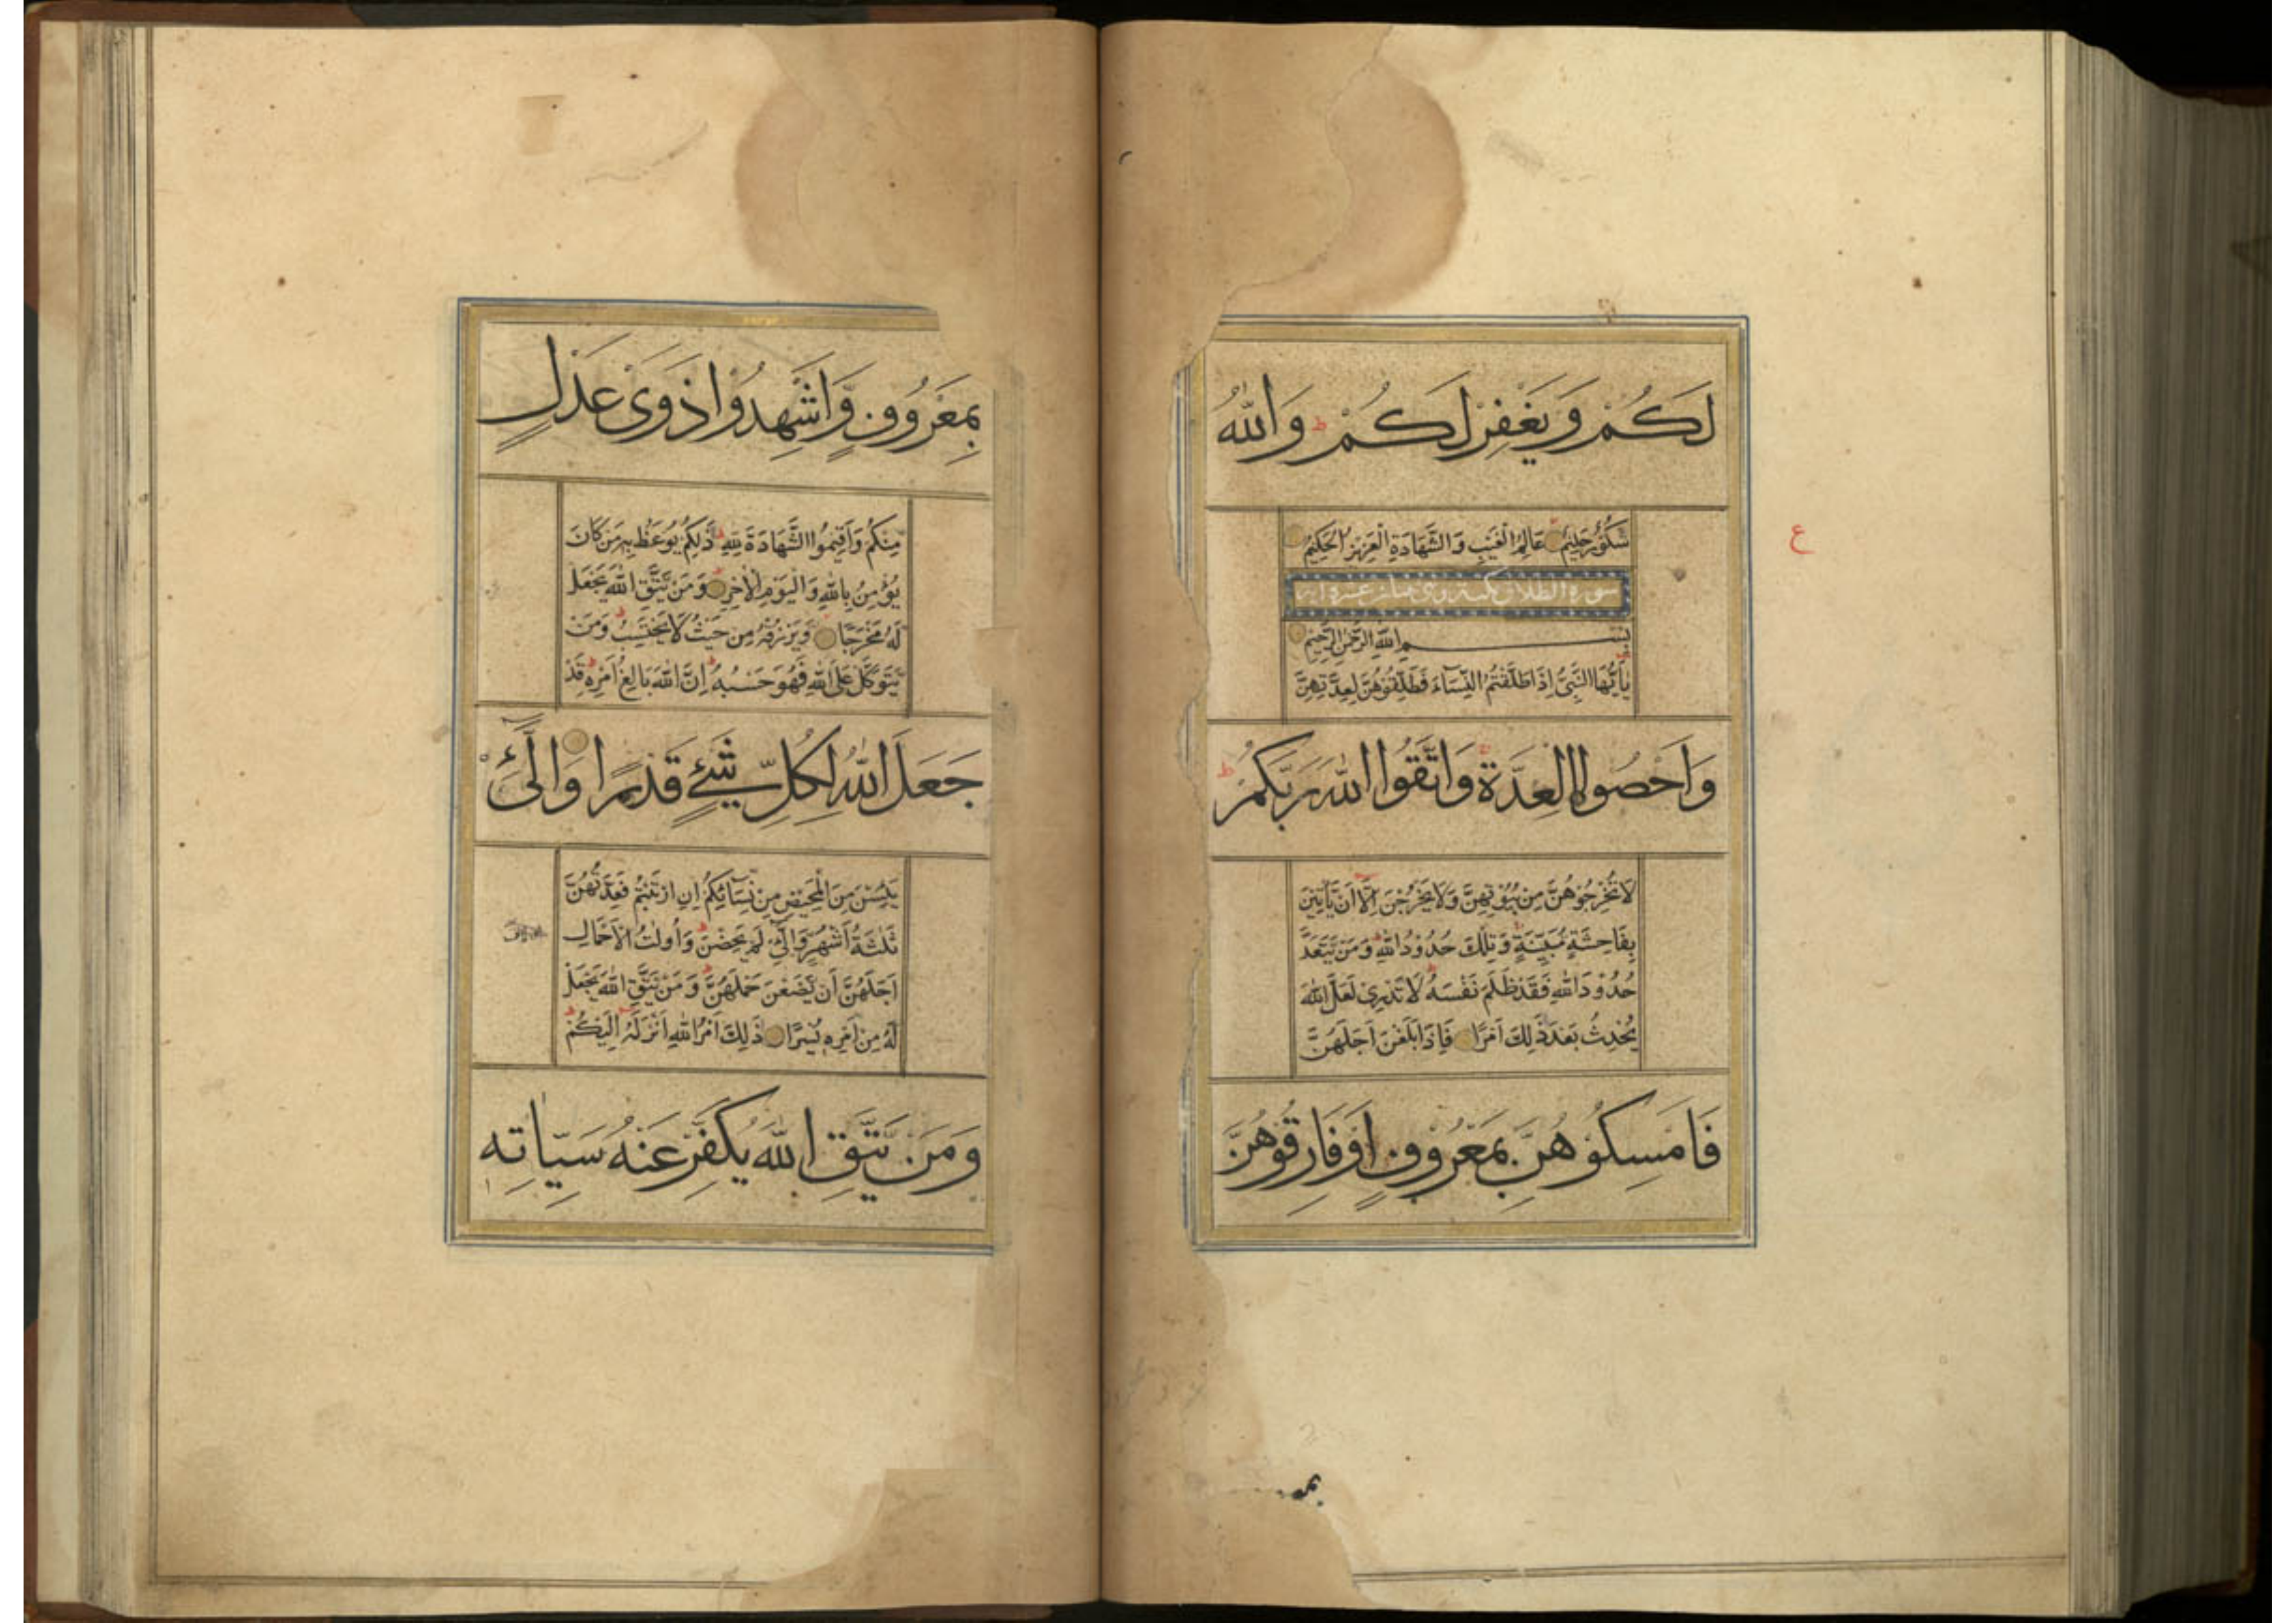 لَكُمْ وَيَغْفِرْ لَكُمْ ط وَاللّٰهُ
شَكُوْرٌ حَلِيْمٌ عَالِمُ الْغَيْبِ وَالشَّهَادَةِ الْعَزِيْزُ الْحَكِيْمُ
ع
سورة الطلاق
بِسْمِ اللّٰهِ الرَّحْمٰنِ الرَّحِيْمِ
يٰاَيُّهَا النَّبِىُّ اِذَا طَلَّقْتُمُ النِّسَآءَ فَطَلِّقُوْهُنَّ لِعِدَّتِهِنَّ
وَاَحْصُوا الْعِدَّةَ وَاتَّقُوا اللّٰهَ رَبَّكُمْ ط
لَا تُخْرِجُوْهُنَّ مِنْ بُيُوْتِهِنَّ وَلَا يَخْرُجْنَ اِلَّا اَنْ يَّاْتِيْنَ
بِفَاحِشَةٍ مُّبَيِّنَةٍ وَتِلْكَ حُدُوْدُ اللّٰهِ وَمَنْ يَّتَعَدَّ
حُدُوْدَ اللّٰهِ فَقَدْ ظَلَمَ نَفْسَهٗ لَا تَدْرِىْ لَعَلَّ اللّٰهَ
يُحْدِثُ بَعْدَ ذٰلِكَ اَمْرًا فَاِذَا بَلَغْنَ اَجَلَهُنَّ
فَاَمْسِكُوْهُنَّ بِمَعْرُوْفٍ اَوْ فَارِقُوْهُنَّ
بِمَعْرُوْفٍ وَّاَشْهِدُوْا ذَوَىْ عَدْلٍ
مِّنْكُمْ وَاَقِيْمُوا الشَّهَادَةَ لِلّٰهِ ط ذٰلِكُمْ يُوْعَظُ بِهٖ مَنْ كَانَ
يُؤْمِنُ بِاللّٰهِ وَالْيَوْمِ الْاٰخِرِ وَمَنْ يَّتَّقِ اللّٰهَ يَجْعَلْ
لَّهٗ مَخْرَجًا وَّيَرْزُقْهُ مِنْ حَيْثُ لَا يَحْتَسِبُ ط وَمَنْ
يَّتَوَكَّلْ عَلَى اللّٰهِ فَهُوَ حَسْبُهٗ ط اِنَّ اللّٰهَ بَالِغُ اَمْرِهٖ ط قَدْ
جَعَلَ اللّٰهُ لِكُلِّ شَىْءٍ قَدْرًا وَالّٰٓئِىْ
يَئِسْنَ مِنَ الْمَحِيْضِ مِنْ نِّسَآئِكُمْ اِنِ ارْتَبْتُمْ فَعِدَّتُهُنَّ
ثَلٰثَةُ اَشْهُرٍ وَّالّٰٓئِىْ لَمْ يَحِضْنَ ط وَاُولَاتُ الْاَحْمَالِ
اَجَلُهُنَّ اَنْ يَّضَعْنَ حَمْلَهُنَّ ط وَمَنْ يَّتَّقِ اللّٰهَ يَجْعَلْ
لَّهٗ مِنْ اَمْرِهٖ يُسْرًا ذٰلِكَ اَمْرُ اللّٰهِ اَنْزَلَهٗ اِلَيْكُمْ ط
وَمَنْ يَّتَّقِ اللّٰهَ يُكَفِّرْ عَنْهُ سَيِّاٰتِهٖ